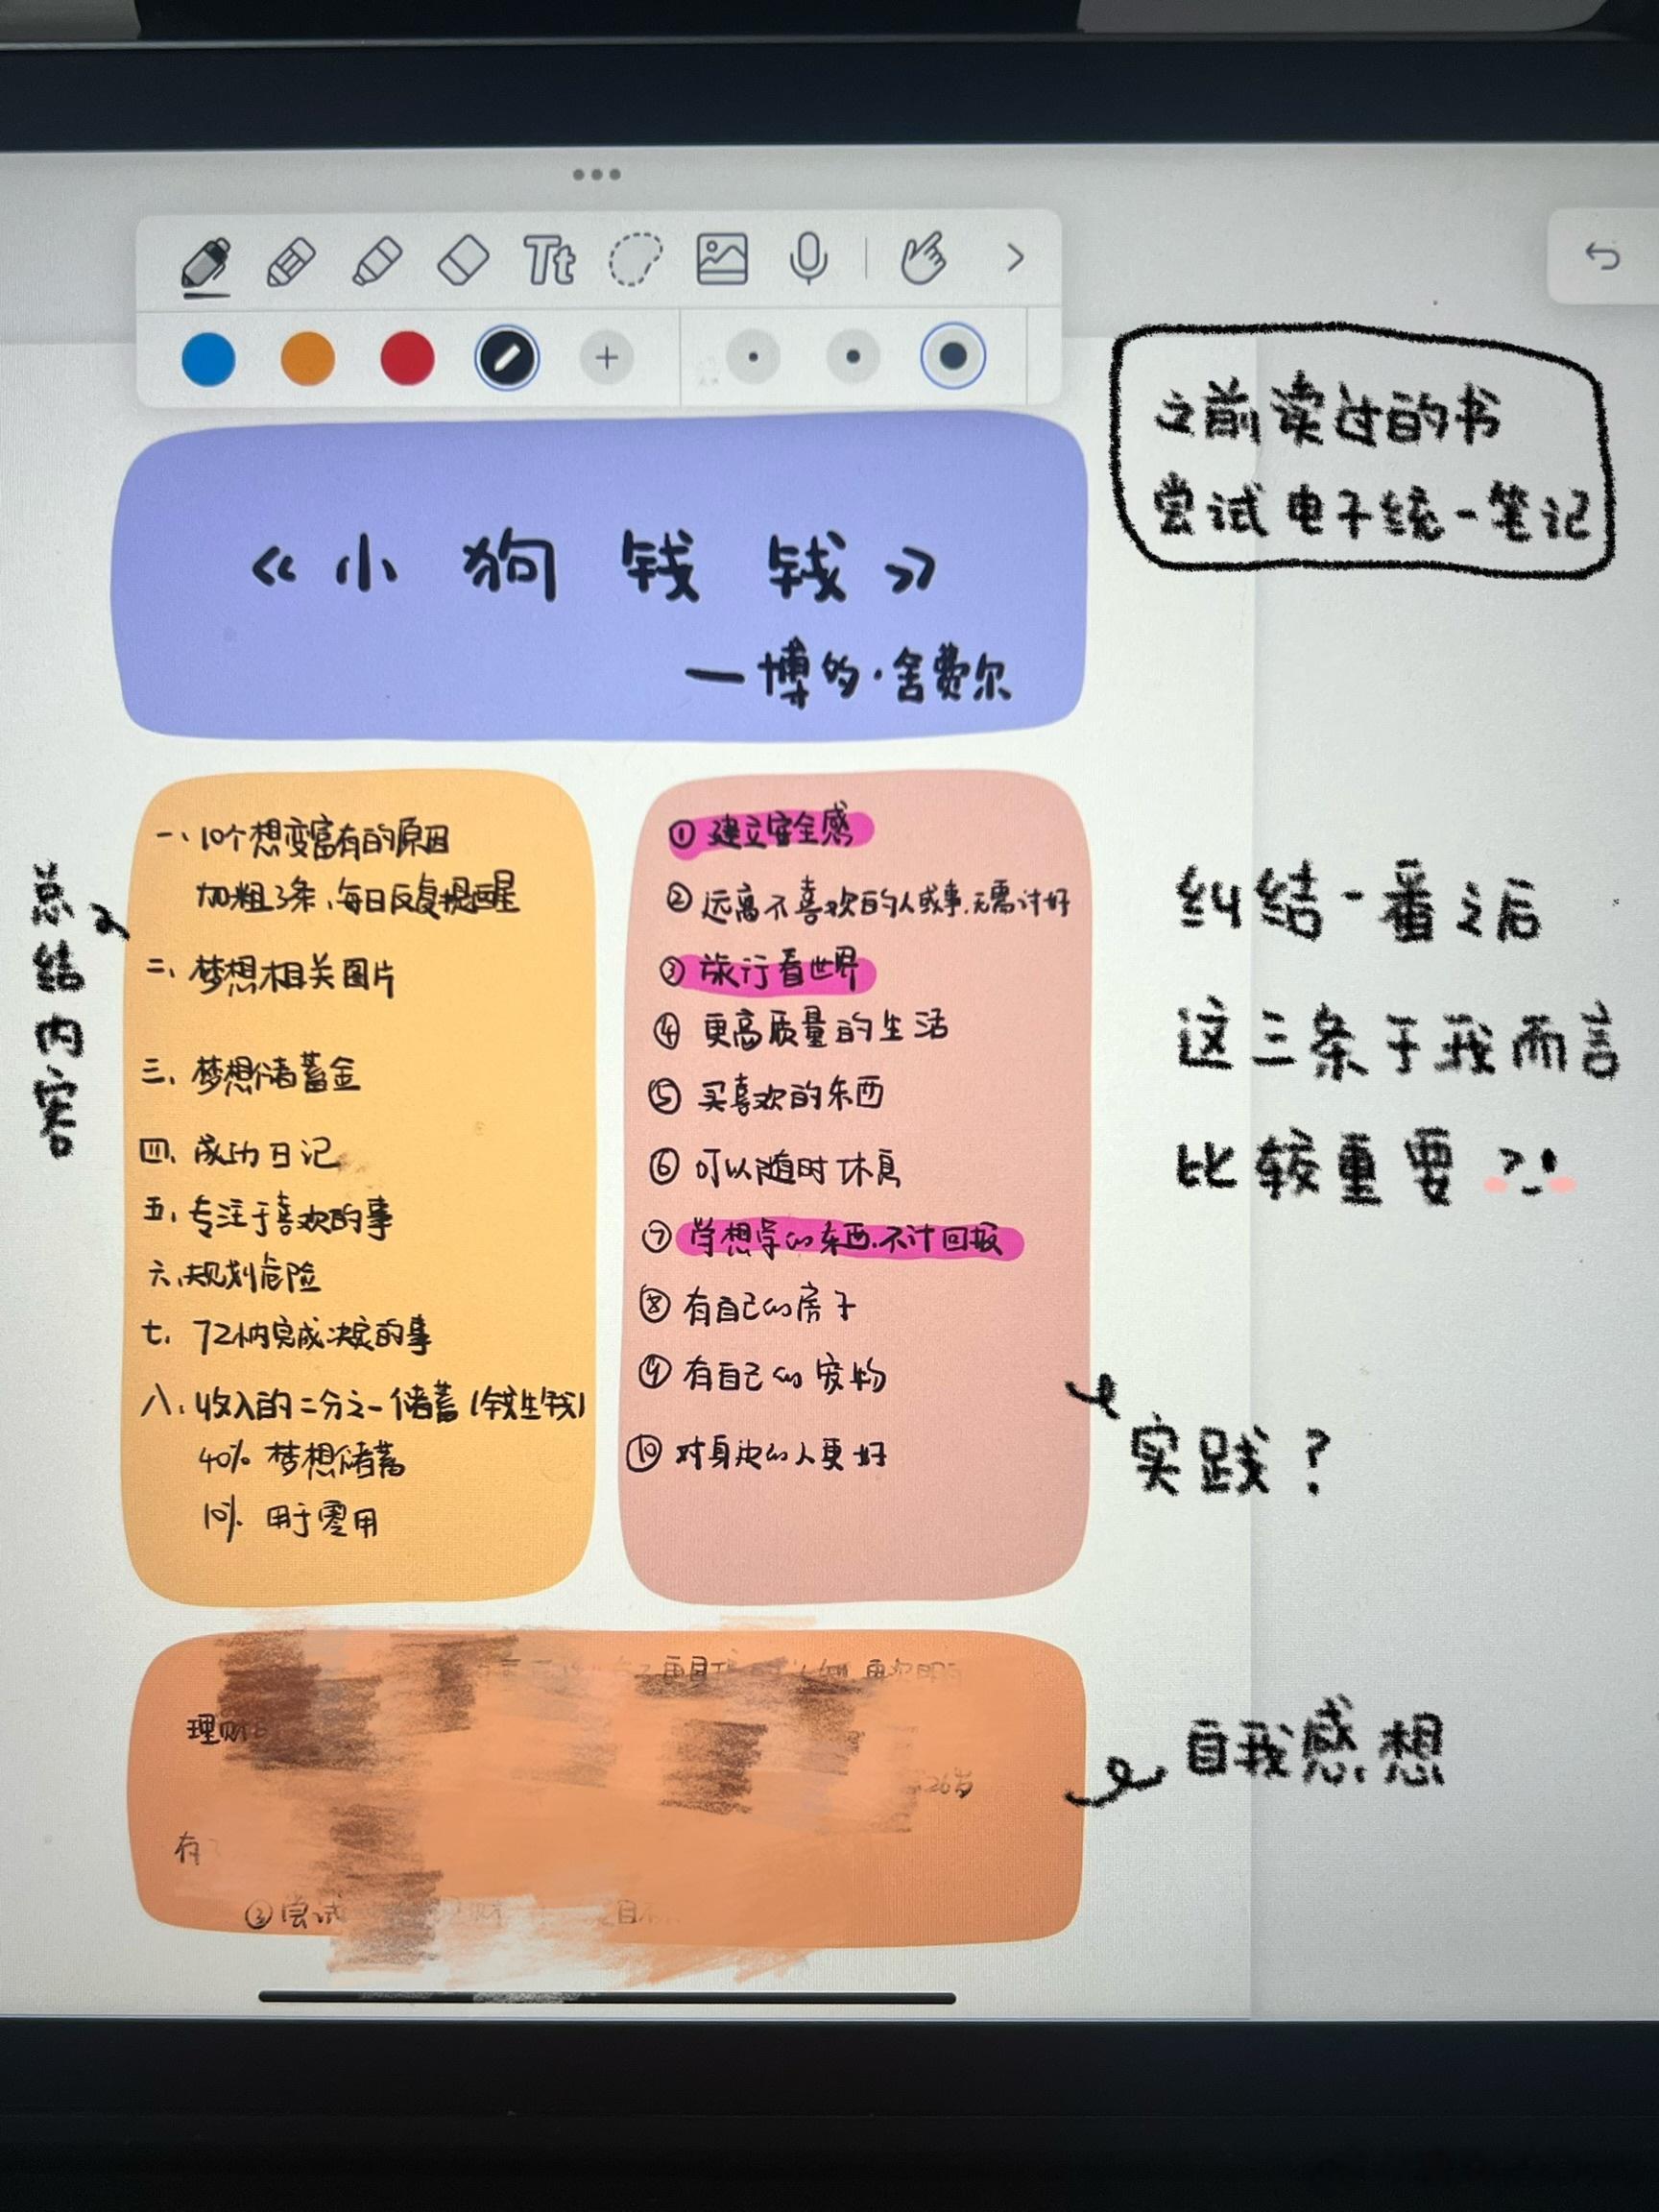 Tt
之前读过的书
尝试电子统一笔记
《小狗钱钱》
—博多·舍费尔
总结内容
一、10个想变富有的原因
加粗3条、每日反复提醒
二、梦想相关图片
三、梦想储蓄金
四、成功日记
五、专注于喜欢的事
六、规划危险
七、72h内完成决定的事
八、收入的二分之一储蓄(钱生钱)
40% 梦想储蓄
10% 用于零用
① 建立安全感
② 远离不喜欢的人或事、无需讨好
③ 旅行看世界
④ 更高质量的生活
⑤ 买喜欢的东西
⑥ 可以随时休息
⑦ 学想学的东西、不计回报
⑧ 有自己的房子
⑨ 有自己的宠物
⑩ 对身边的人更好
纠结一番之后
这三条于我而言
比较重要
实践?
理财
26岁
有
③尝试
自我感想